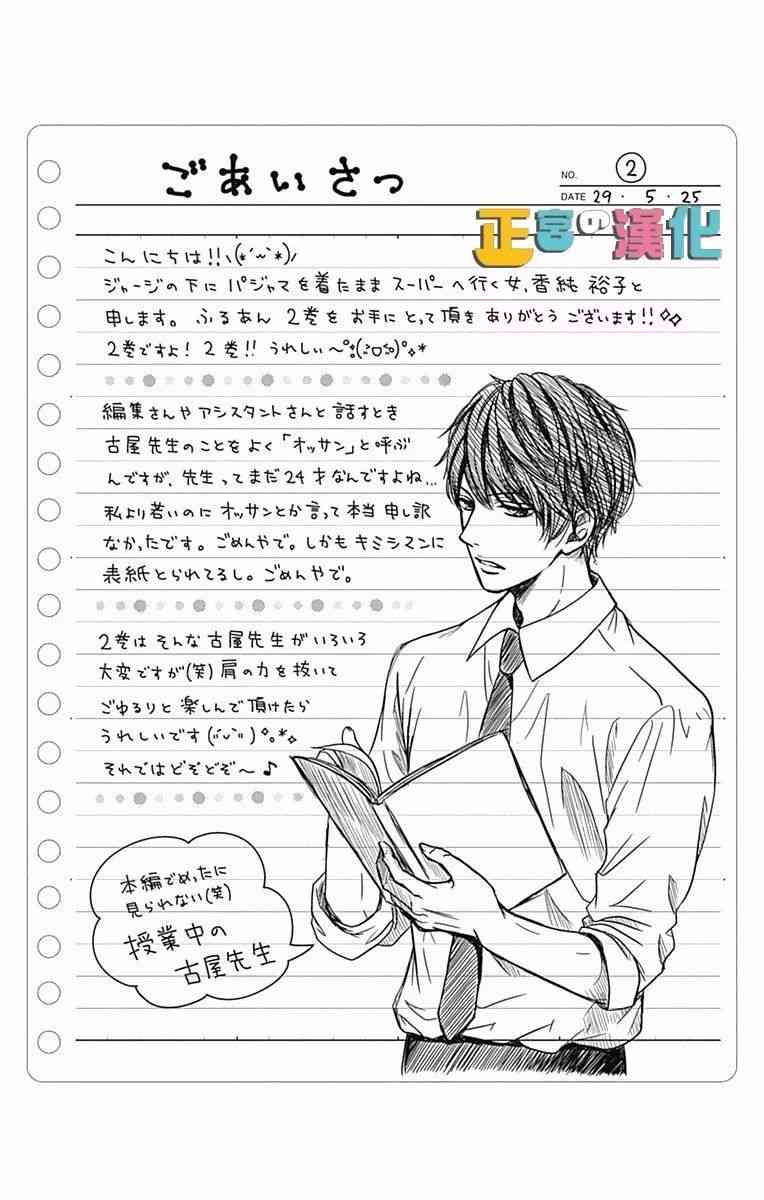 ごあいさつ
NO. ②
DATE 29・5・25
正宮の漢化
こんにちは!!ヽ(*´ｗ`*)ﾉ
ジャージの下に パジャマを着たまま スーパーへ行く女、香純 裕子と
申します。ふるあん 2巻を お手にとって頂き ありがとう ございます!!✧✧
2巻ですよ! 2巻!! うれしい〜
編集さんや アシスタントさんと 話すとき
古屋先生のことを よく「オッサン」と呼ぶ
んですが、先生ってまだ24才なんですよね...
私より若いのに オッサンとか言って本当 申し訳
なかったです。ごめんやで。しかもキミシマンに
表紙とられてるし。ごめんやで。
2巻は そんな古屋先生がいろいろ
大変ですが(笑) 肩の力を抜いて
ごゆるりと 楽しんで頂けたら
うれしいです
それではどぞどぞ〜♪
本編でめったに
見られない(笑)
授業中の
古屋先生